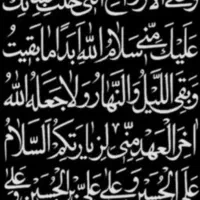 عَلَيْكَ مِنّي سَلامُ اللهِ اَبَداً ما بَقيتُ
وَبَقِىَ اللَّيْلُ وَالنَّهارُ وَلا جَعَلَهُ اللهُ
اخِرَ الْعَهْدِ مِنّي لِزِيارَتِكُمْ اَلسَّلامُ
عَلَى الْحُسَيْنِ وَعَلى عَلِيِّ بْنِ الْحُسَيْنِ وَعَلى